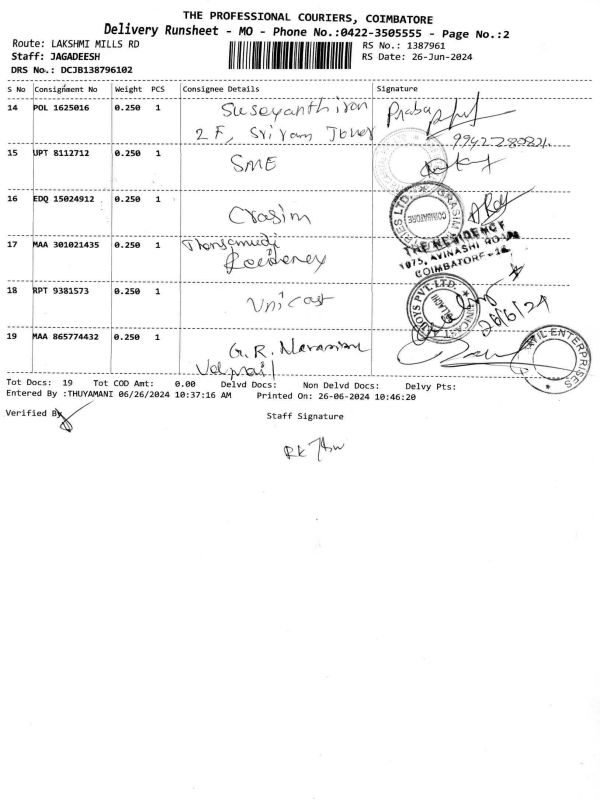 THE PROFESSIONAL COURIERS, COIMBATORE
Delivery Runsheet - MO - Phone No.:0422-3505555 - Page No.:2
Route: LAKSHMI MILLS RD RS No.: 1387961
Staff: JAGADEESH RS Date: 26-Jun-2024
DRS No.: DCJB138796102
S No Consignment No Weight PCS Consignee Details Signature
14 POL 1625016 0.250 1 Suseyanthiran Praba
2 F, Sri Vam Tower 9942280821
15 UPT 8112712 0.250 1 SME
16 EDQ 15024912 0.250 1 Crasim
COIMBATORE
17 MAA 301021435 0.250 1 Residency
THE RESIDENCY
1075, AVINASHI ROAD
COIMBATORE - 18
18 RPT 9381573 0.250 1 Unicast
ALLOYS PVT. LTD.
26/6/24
19 MAA 865774432 0.250 1 G. R.
ENTERPRISES
Tot Docs: 19 Tot COD Amt: 0.00 Delvd Docs: Non Delvd Docs: Delvy Pts:
Entered By :THUYAMANI 06/26/2024 10:37:16 AM Printed On: 26-06-2024 10:46:20
Verified By Staff Signature